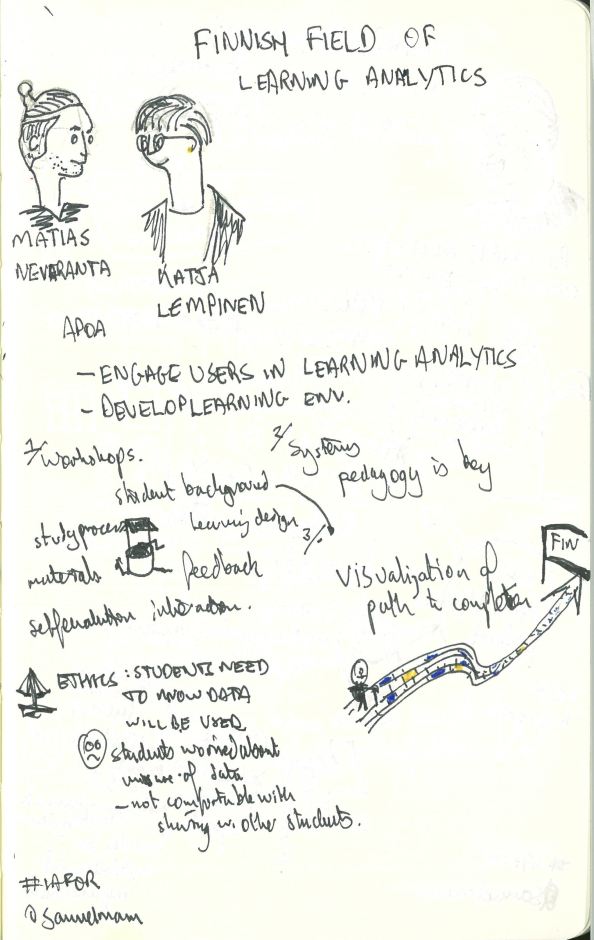 FINNISH FIELD OF
LEARNING ANALYTICS
MATIAS
NEVARANTA
KATJA
LEMPINEN
APOA
- ENGAGE USERS IN LEARNING ANALYTICS
- DEVELOP LEARNING ENV.
1/ Workshops.
student background
study process
learning design
materials
feedback
self evaluation interaction.
2/ Systems
pedagogy is key
3/.
visualization of
path to completion
FIN
ETHICS: STUDENTS NEED
TO KNOW DATA
WILL BE USED
students worried about
misuse of data
- not comfortable with
sharing w. other students.
#IAFOR